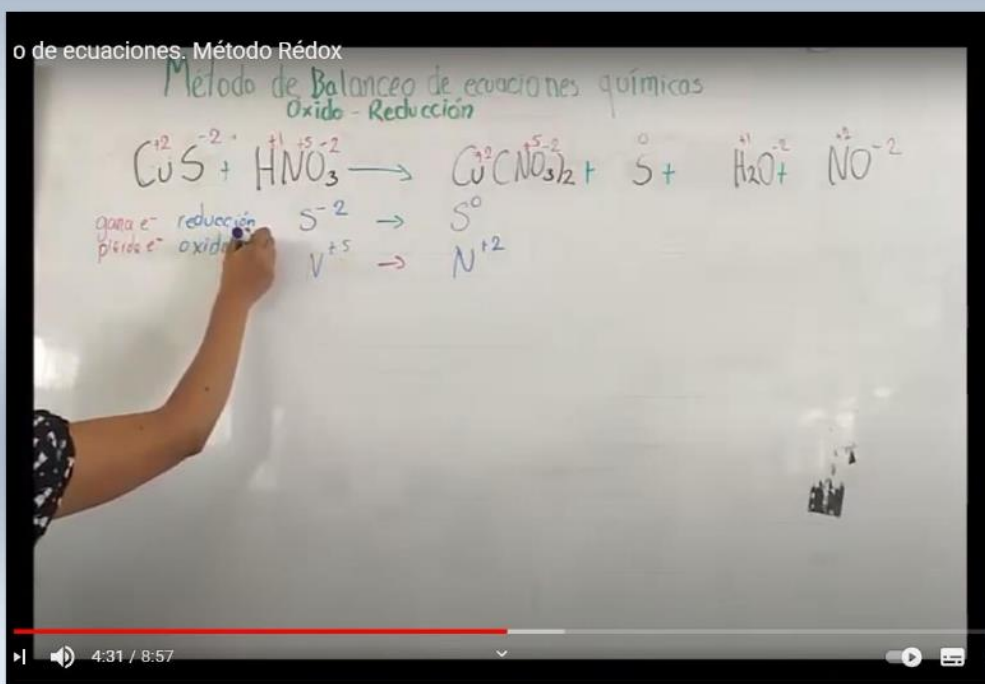 o de ecuaciones. Método Rédox
Método de Balanceo de ecuaciones químicas
Oxido - Reducción
+2 -2 +1 +5 -2 +2 +5 -2 0 +1 -2 +2
CuS + HNO3 → Cu(NO3)2 + S + H2O + NO-2
gana e- reducción S-2 → S0
pierde e- V+5 → N+2
4:31 / 8:57